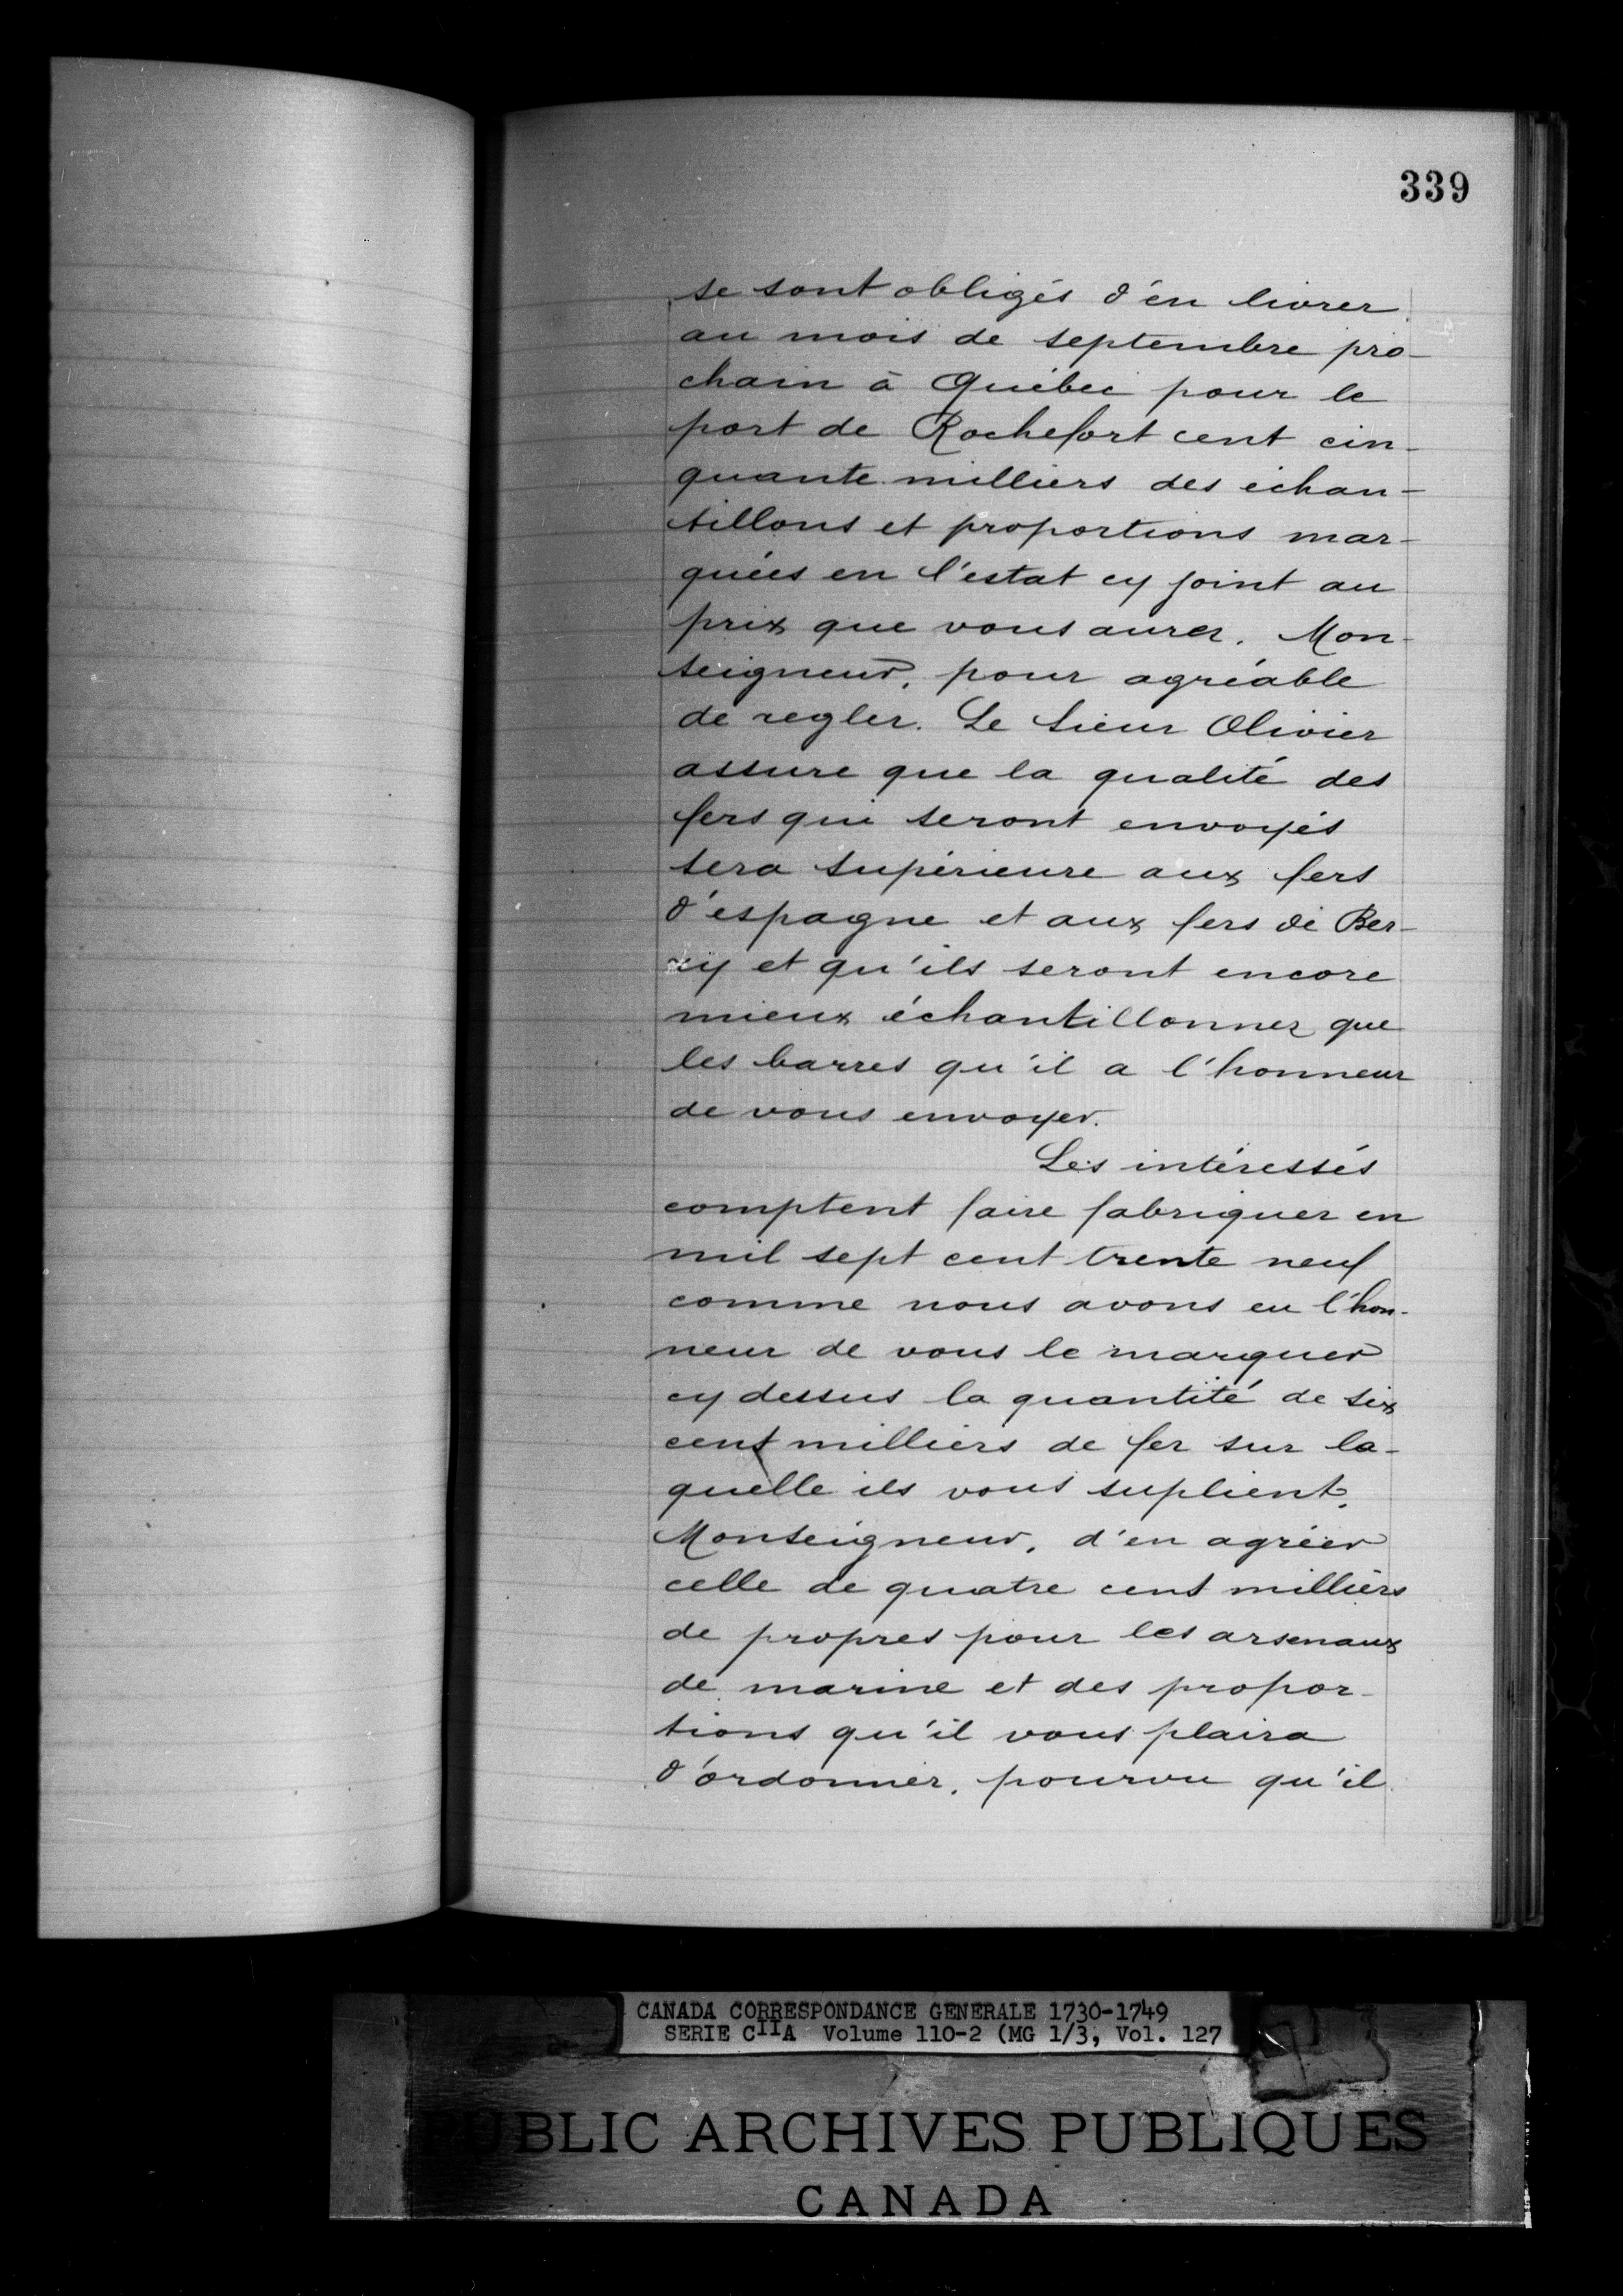 339
se sont obligés d'en livrer
au mois de septembre pro-
chain à Québec pour le
port de Rochefort cent cin-
quante milliers des échan-
tillons et proportions mar-
quées en l'estat cy joint au
prix que vous aurez, Mon-
seigneur, pour agréable
de regler. Le Sieur Olivier
assure que la qualité des
fers qui seront envoyés
sera supérieure aux fers
d'espagne et aux fers de Ber-
ry et qu'ils seront encore
mieux échantillonner que
les barres qu'il a l'honneur
de vous envoyer.
Les intéressés
comptent faire fabriquer en
mil sept cent trente neuf
comme nous avons eu l'hon-
neur de vous le marquer
cy dessus la quantité de six
cent milliers de fer sur la-
quelle ils vous suplient,
Monseigneur, d'en agréer
celle de quatre cent milliers
de propres pour les arsenaux
de marine et des propor-
tions qu'il vous plaira
d'ordonner, pourvu qu'il
CANADA CORRESPONDANCE GENERALE 1730-1749
SERIE CIIA Volume 110-2 (MG 1/3, Vol. 127
PUBLIC ARCHIVES PUBLIQUES
CANADA